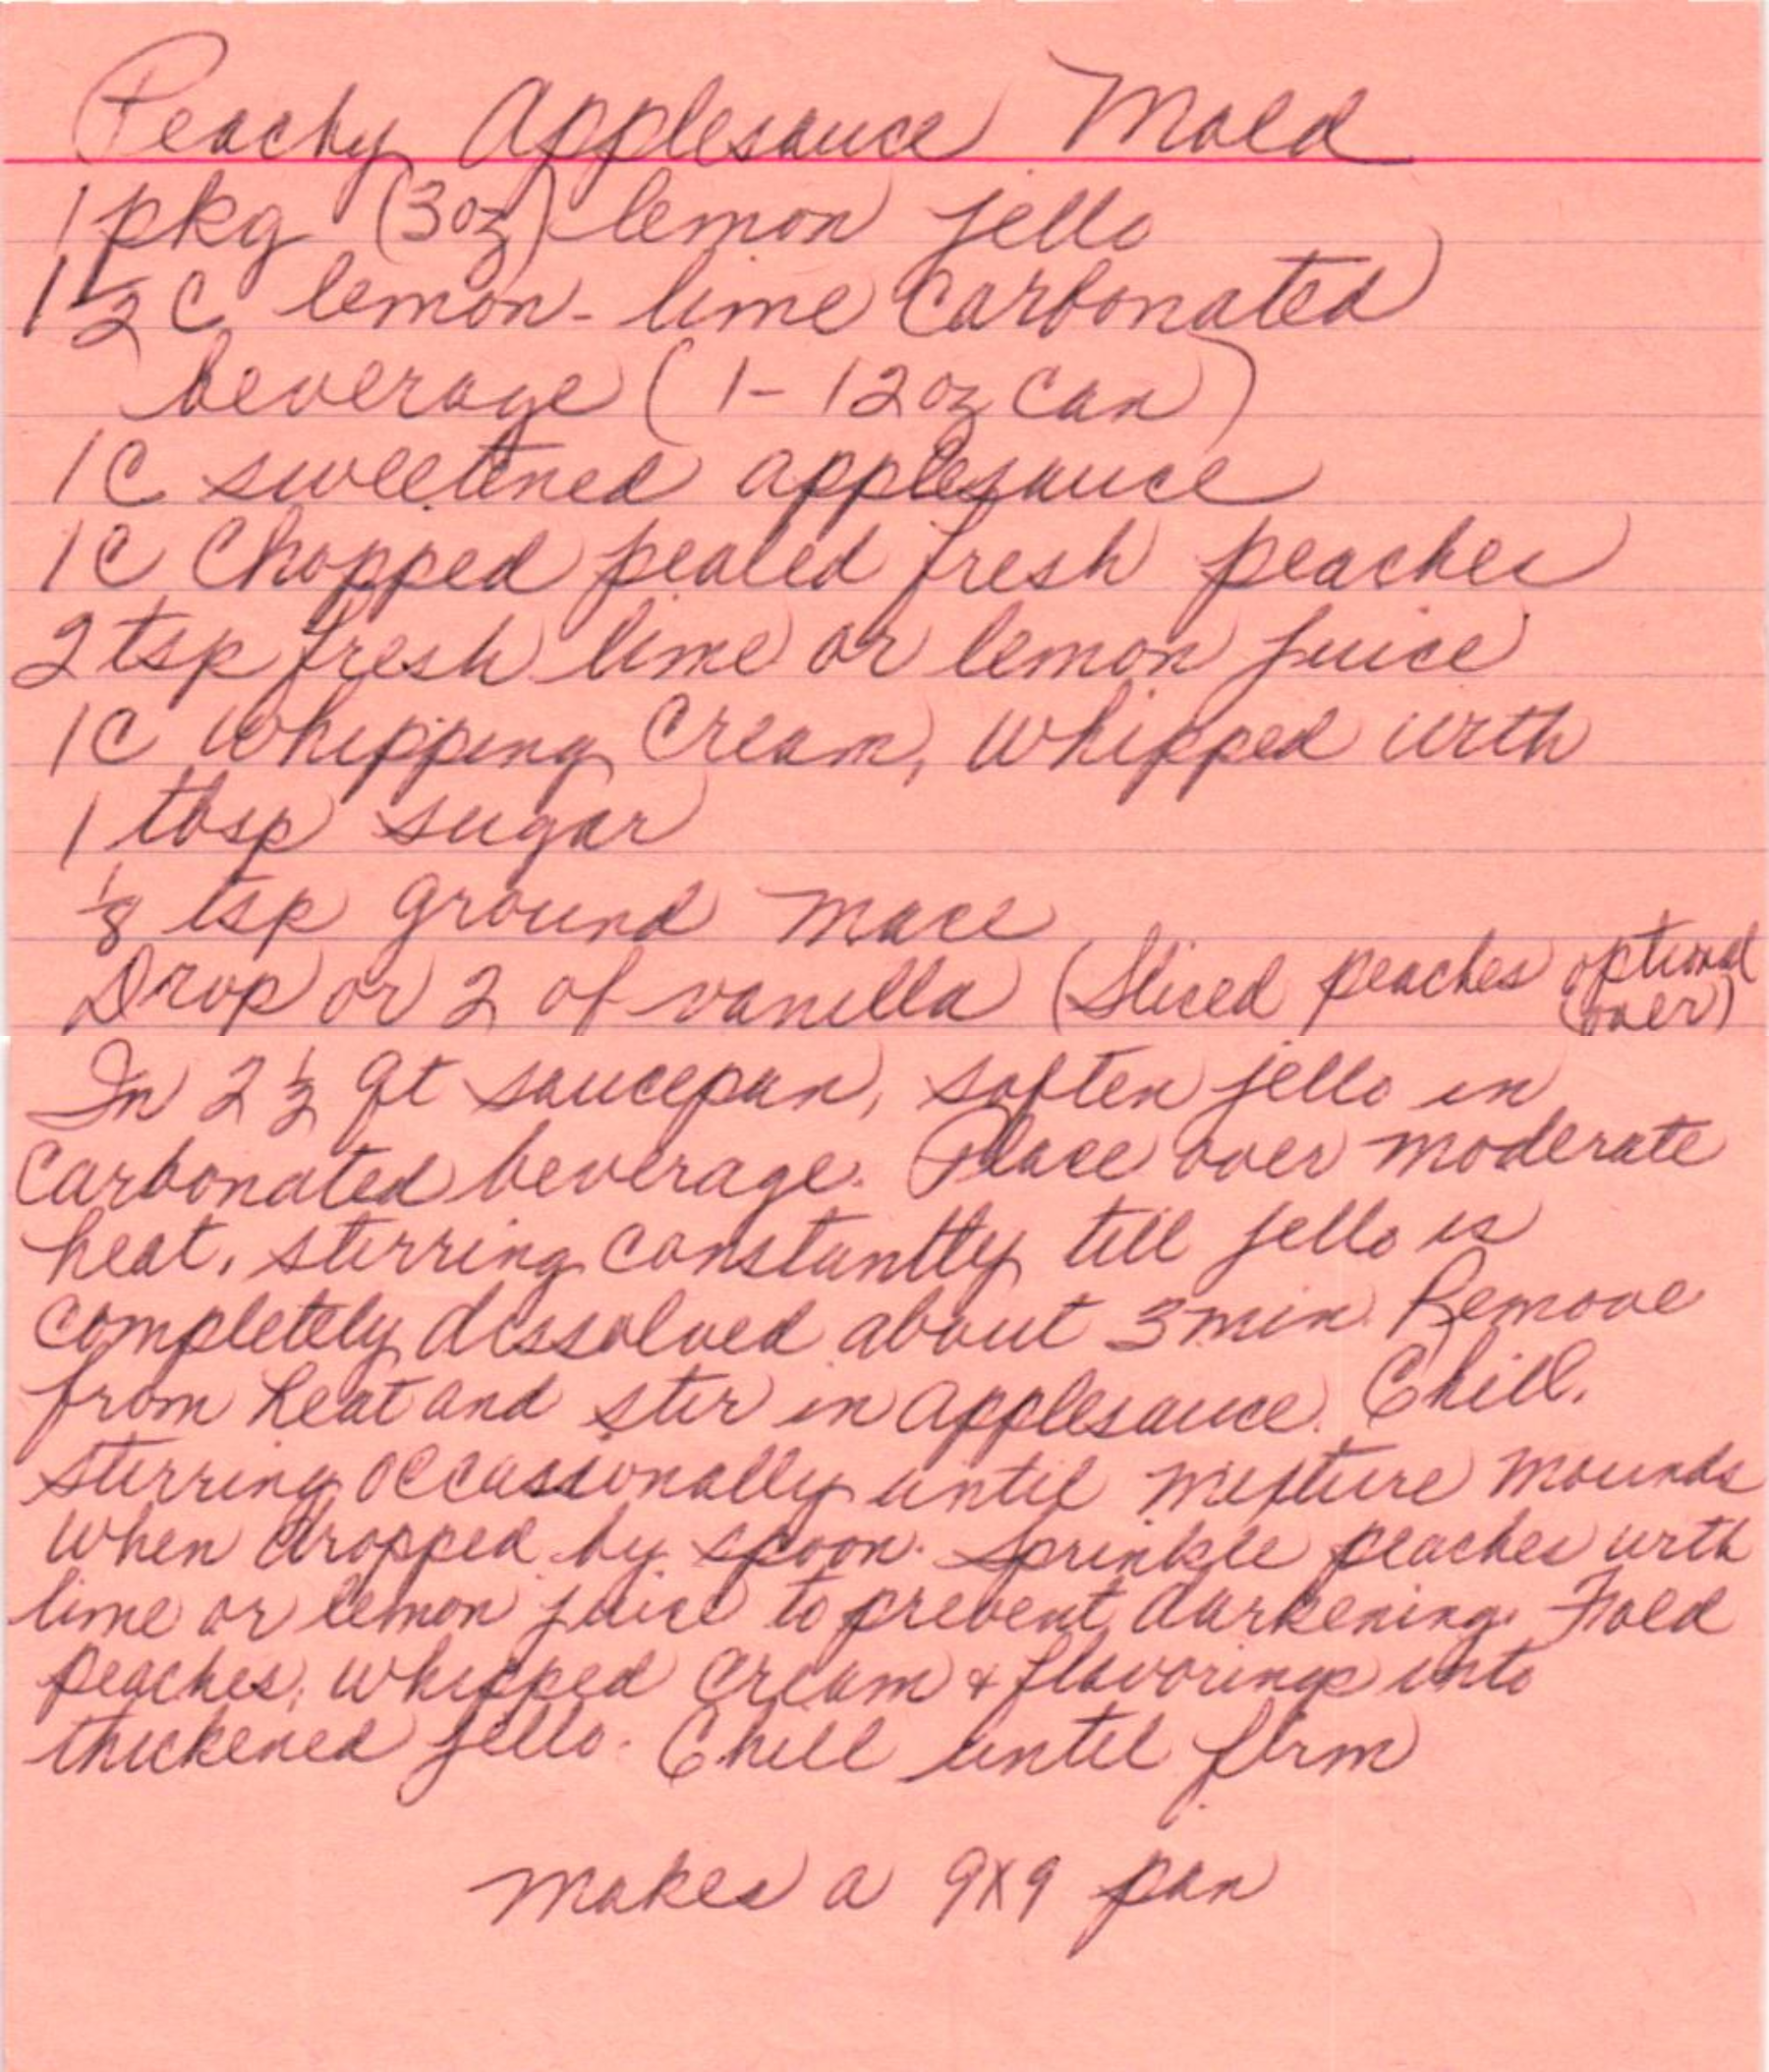 Peachy Applesauce Mold
1 pkg (3 oz) lemon jello
1 1/2 C lemon-lime carbonated
beverage (1-12 oz can)
1 C sweetened applesauce
1 C Chopped pealed fresh peaches
2 tsp fresh lime or lemon juice
1 C whipping cream, whipped with
1 tbsp sugar
1/8 tsp ground mace
Drop or 2 of vanilla (Sliced peaches optional
(over)
In 2 1/2 qt saucepan, soften jello in
carbonated beverage. Place over moderate
heat, stirring constantly till jello is
completely dissolved about 3 min. Remove
from heat and stir in applesauce. Chill,
stirring occassionally until mixture mounds
when dropped by spoon. Sprinkle peaches with
lime or lemon juice to prevent darkening. Fold
peaches, whipped cream & flavorings into
thickened jello. Chill until firm
Makes a 9X9 pan